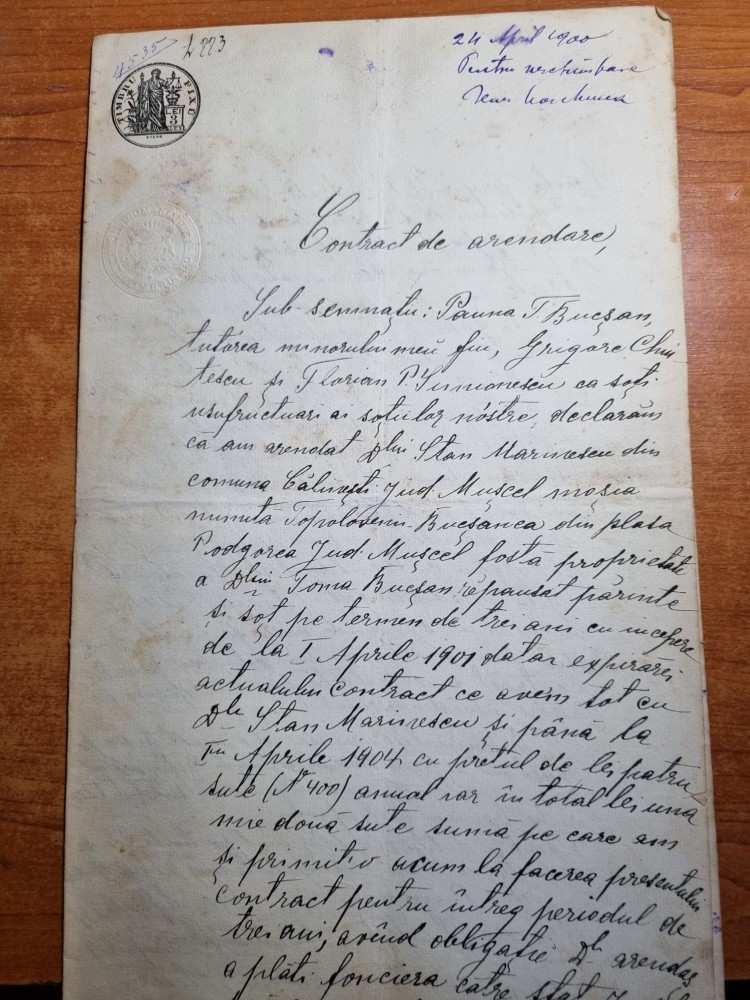 4535
4223
24 April 1900
Pentru
TIMBRU FIX
LEI 3
Contract de arendare,
Sub-semnații: Pauna T. Bucșan,
tutórea minorului meu fiu, Grigore
și Florian P. ca soți
usufructuari ai soțiilor nóstre, declarăm
că am arendat Dlui Stan Marinescu din
comuna Călinești Jud. Mușcel moșia
numită Topoloveni-Bucșanca din plasa
Podgorea Jud. Mușcel fostă proprietate
a Dlui Toma Bucșan repausat părinte
și soț pe termen de trei ani cu incepere
de la I Aprilie 1901 data expirărei
actualului contract ce avem tot cu
Dl. Stan Marinescu și până la
Aprilie 1904 cu prețul de lei patru
sute (No 400) anual iar în total lei una
mie două sute sumă pe care am
și primit'o acum la facerea presentului
contract pentru întreg periodul de
trei ani, avênd obligație Dl. arendaș
a plăti fonciera către stat